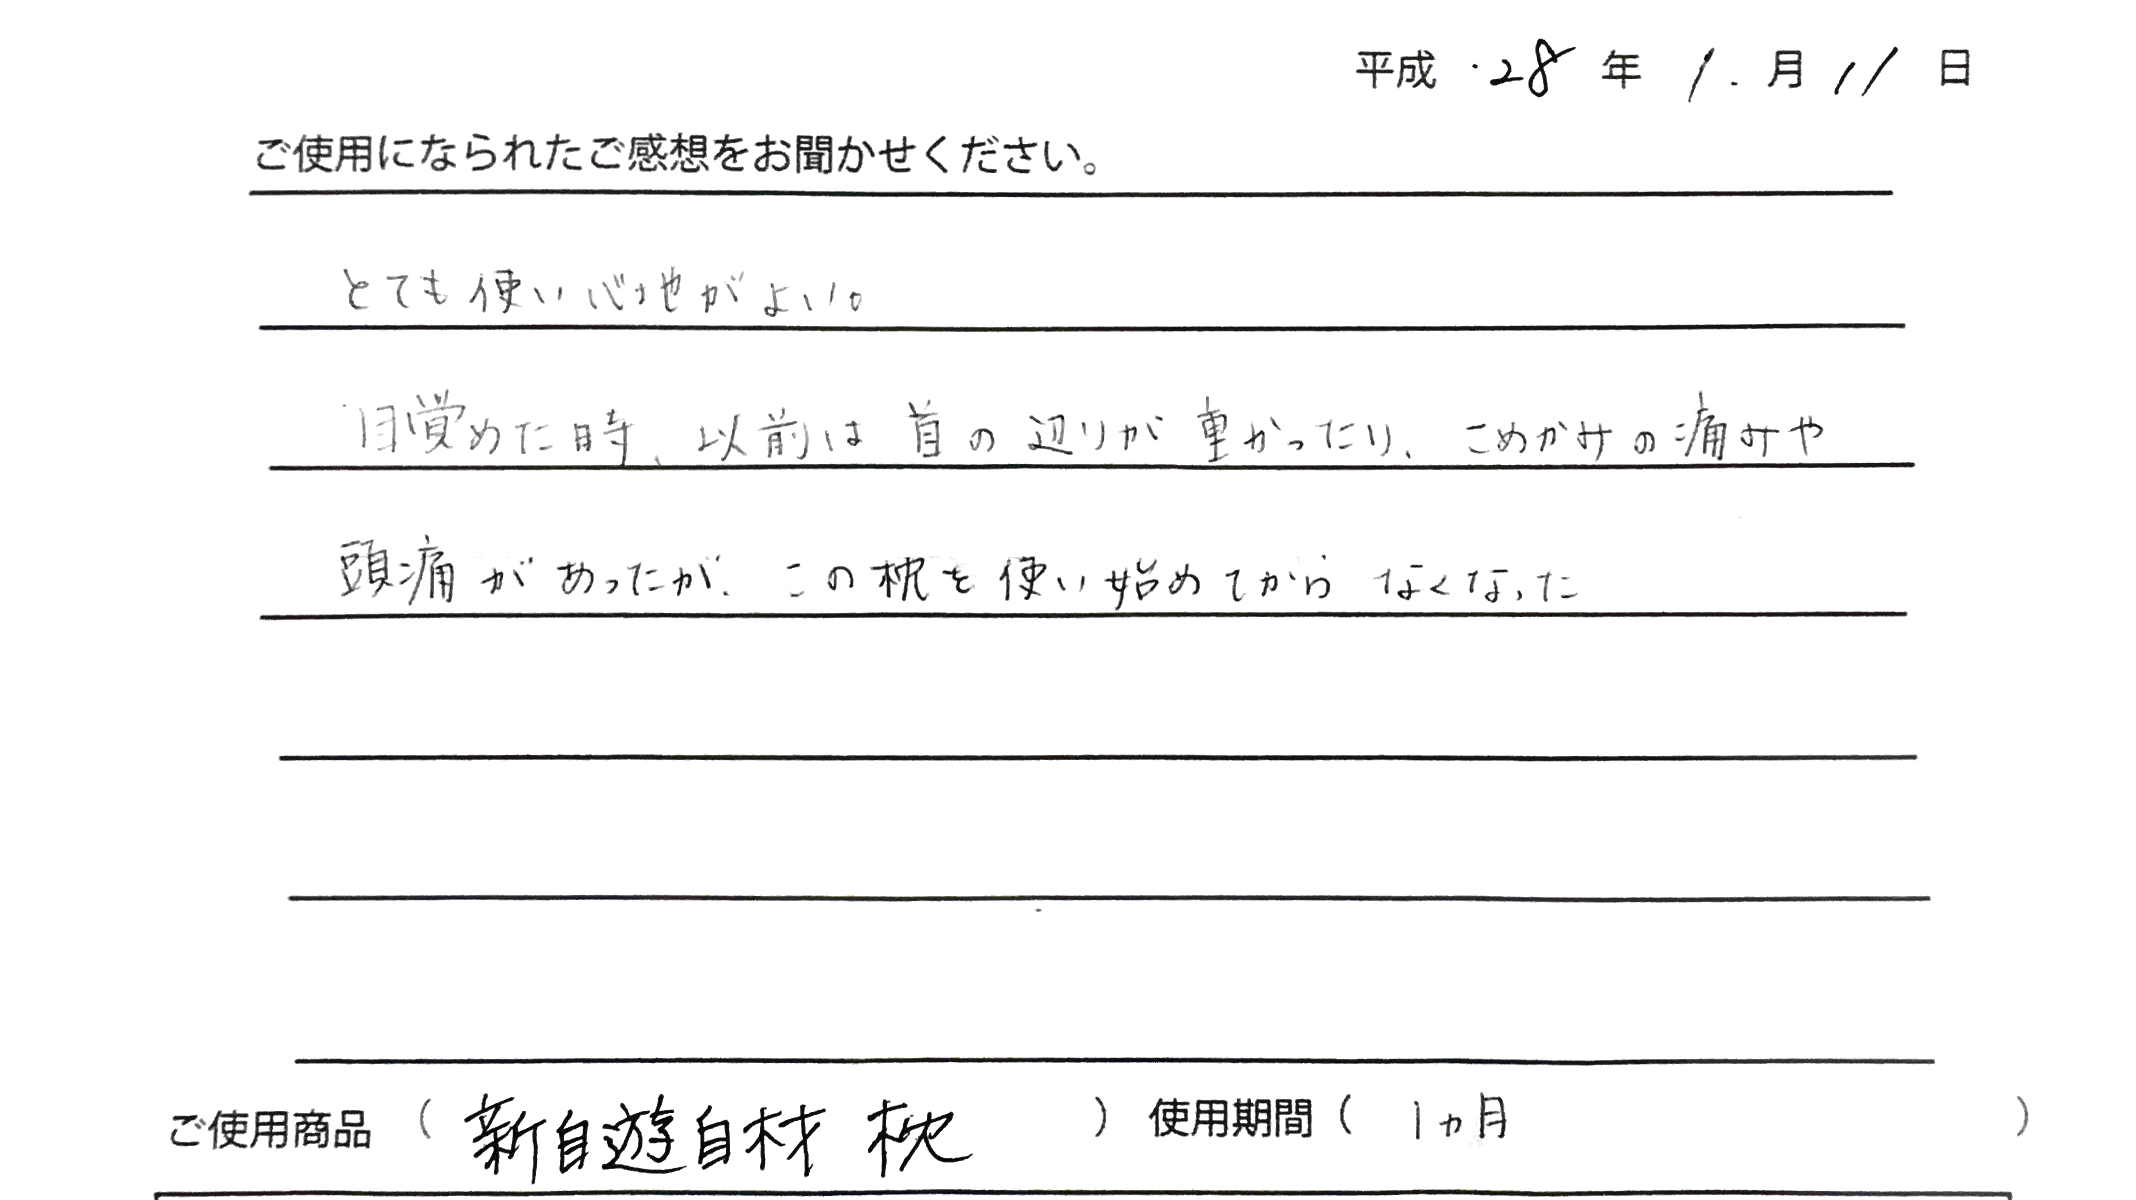 平成 28 年 1. 月 11 日
ご使用になられたご感想をお聞かせください。
とても使い心地がよい。
目覚めた時、以前は首の辺りが重かったり、こめかみの痛みや
頭痛があったが、この枕を使い始めてからなくなった
ご使用商品 ( 新自遊自材 枕 ) 使用期間 ( 1ヵ月 )